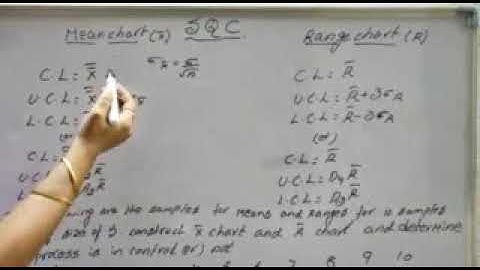 Mean chart (x̄) S Q C Range chart (R)
σx̄ = σ/√n
C.L = X̿
U.C.L = X̿
L.C.L = X̿
(or)
C.L =
U.C.L
L.C.L
C.L = R̄
U.C.L = R̄ + 3σR
L.C.L = R̄ - 3σR
(or)
C.L = R̄
U.C.L = D4 R̄
L.C.L = D3 R̄
are the samples for Means and Ranges for 10 samples
size of 5. construct X̄ chart and R̄ chart and determine
process is in control (or) not
7 8 9 10